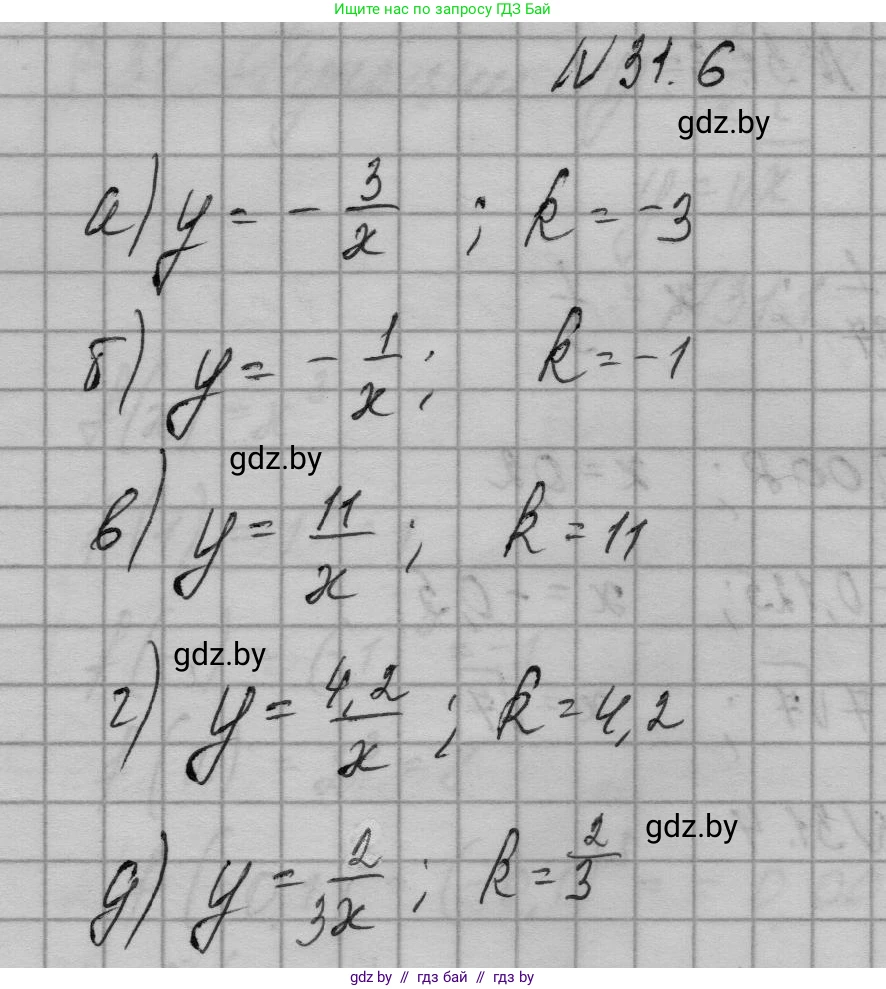 Ищите нас по запросу ГДЗ Бай
N 31. 6
gdz.by
а) y = - 3/x ; k = -3
б) y = - 1/x ; k = -1
gdz.by
в) y = 11/x ; k = 11
gdz.by
г) y = 4,2/x ; k = 4,2
gdz.by
д) y = 2/3x ; k = 2/3
gdz.by // гдз бай // gdz by